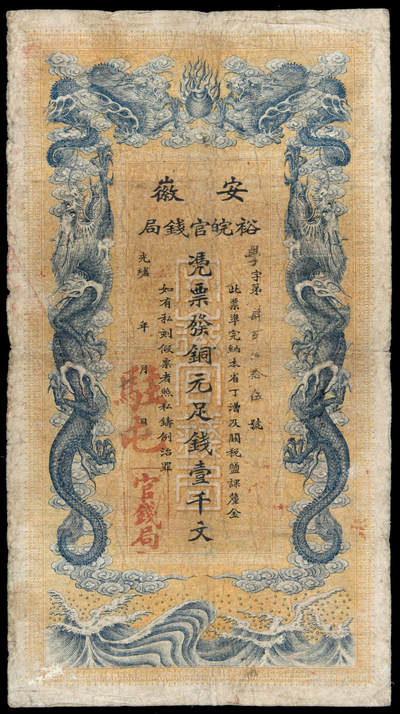 安徽
裕皖官錢局
學字第肆百  拾伍號
此票準完納本省丁漕及關稅鹽課釐金
憑票發銅元足錢壹千文
如有私刻假票者照私鑄例治罪
光緒 年 月 日
駐屯
官錢局